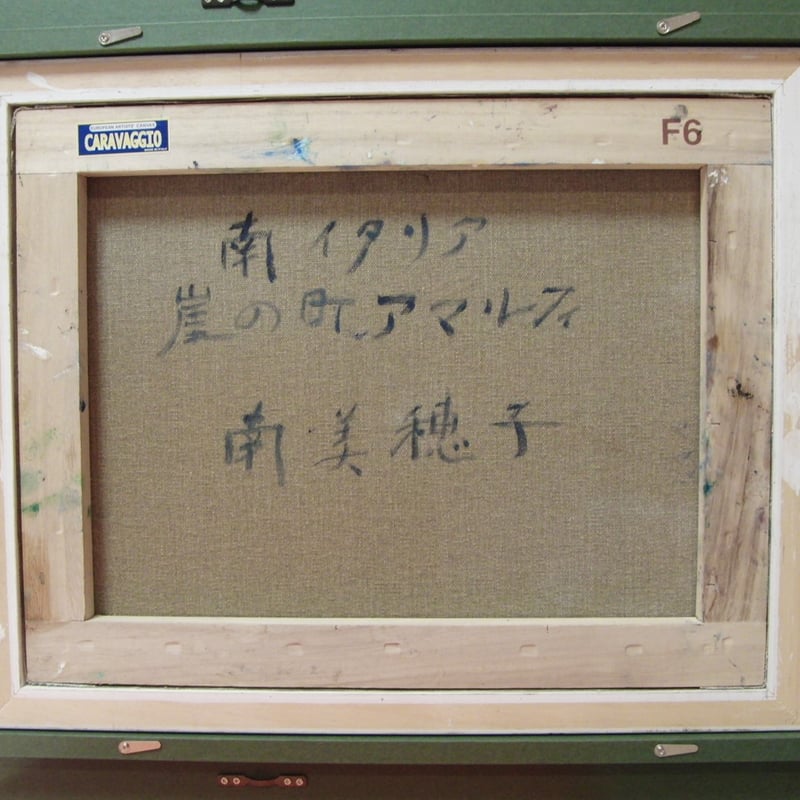 EUROPEAN ARTISTS' CANVAS
CARAVAGGIO
F6
南イタリア
崖の町、アマルフィ
南美穂子